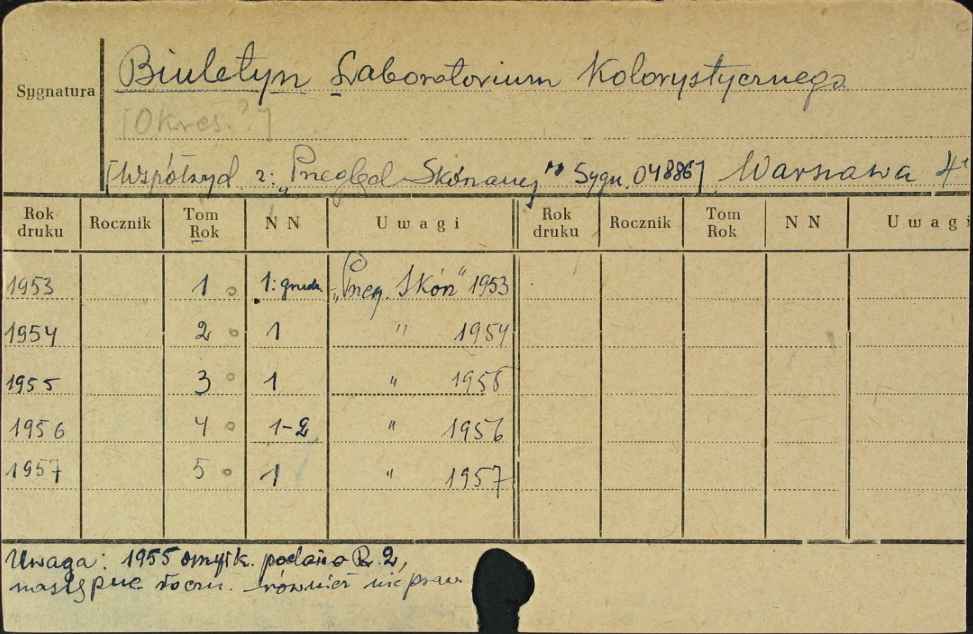 Sygnatura
Biuletyn Laboratorium Kolorystycznego
[Okres.?]
[Współwyd. z: „Przegląd Skórzany" Sygn. 04886] Warszawa 4°
Rok druku Rocznik Tom Rok NN Uwagi Rok druku Rocznik Tom Rok NN Uwagi
1953 1 1: grudz. „Przeg. Skórz" 1953
1954 2 1 " 1954
1955 3 1 " 1955
1956 4 1-2 " 1956
1957 5 1 " 1957
Uwaga: 1955 omyłk. podano R. 2,
następne roczn. również niepraw